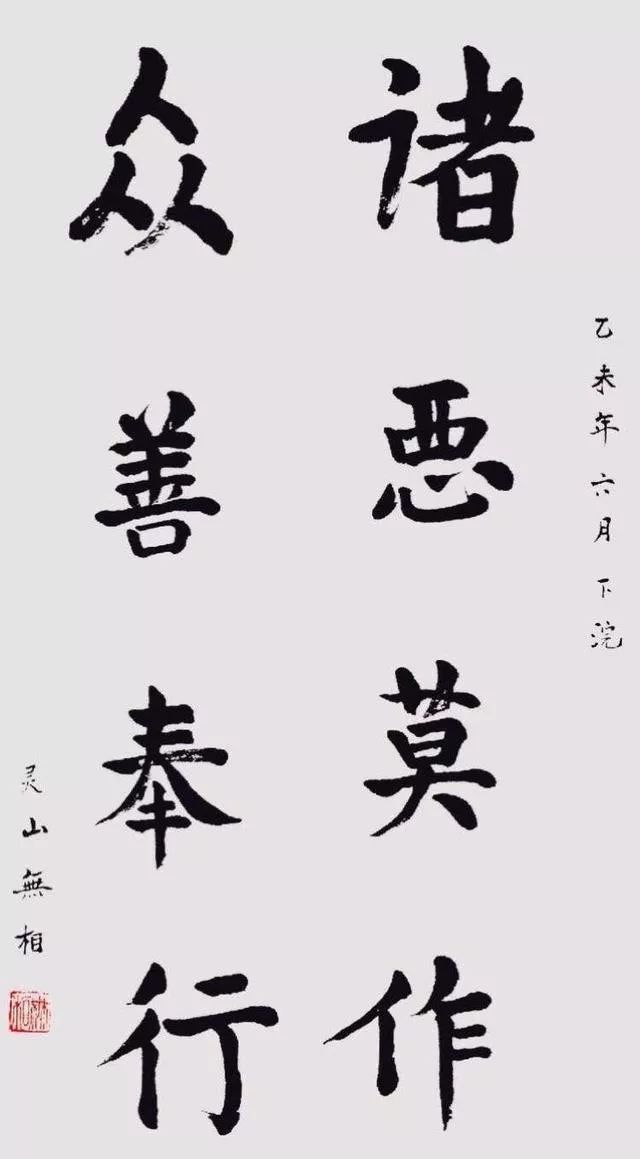 乙未年六月下浣
诸恶莫作
众善奉行
灵山無相